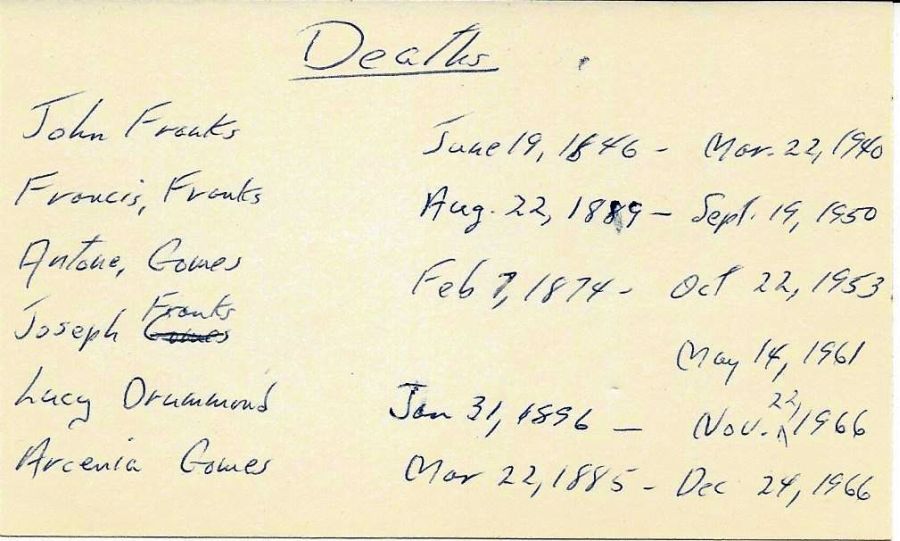 Deaths
John Franks June 19, 1846 - Mar. 22, 1940
Francis, Franks Aug. 22, 1889 - Sept. 19, 1950
Antone, Gomes Feb 7, 1874 - Oct 22, 1953
Joseph Franks Gomes May 14, 1961
Lucy Drummond Jan 31, 1896 - Nov. 22, 1966
Arcenia Gomes Mar 22, 1885 - Dec 24, 1966